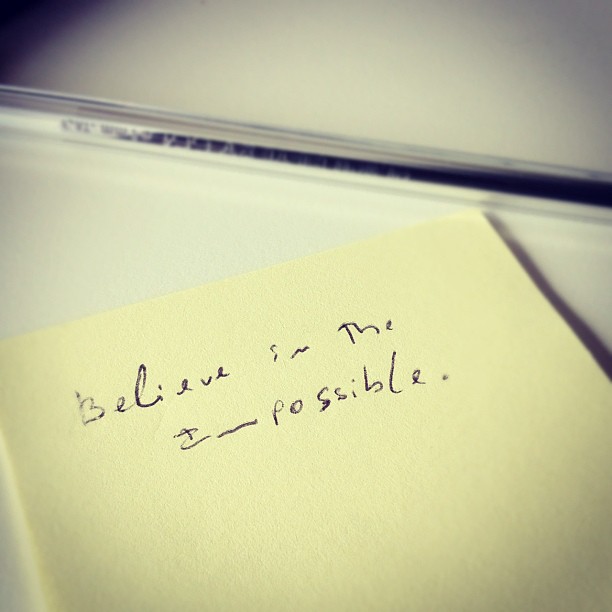 Believe in the
Impossible.